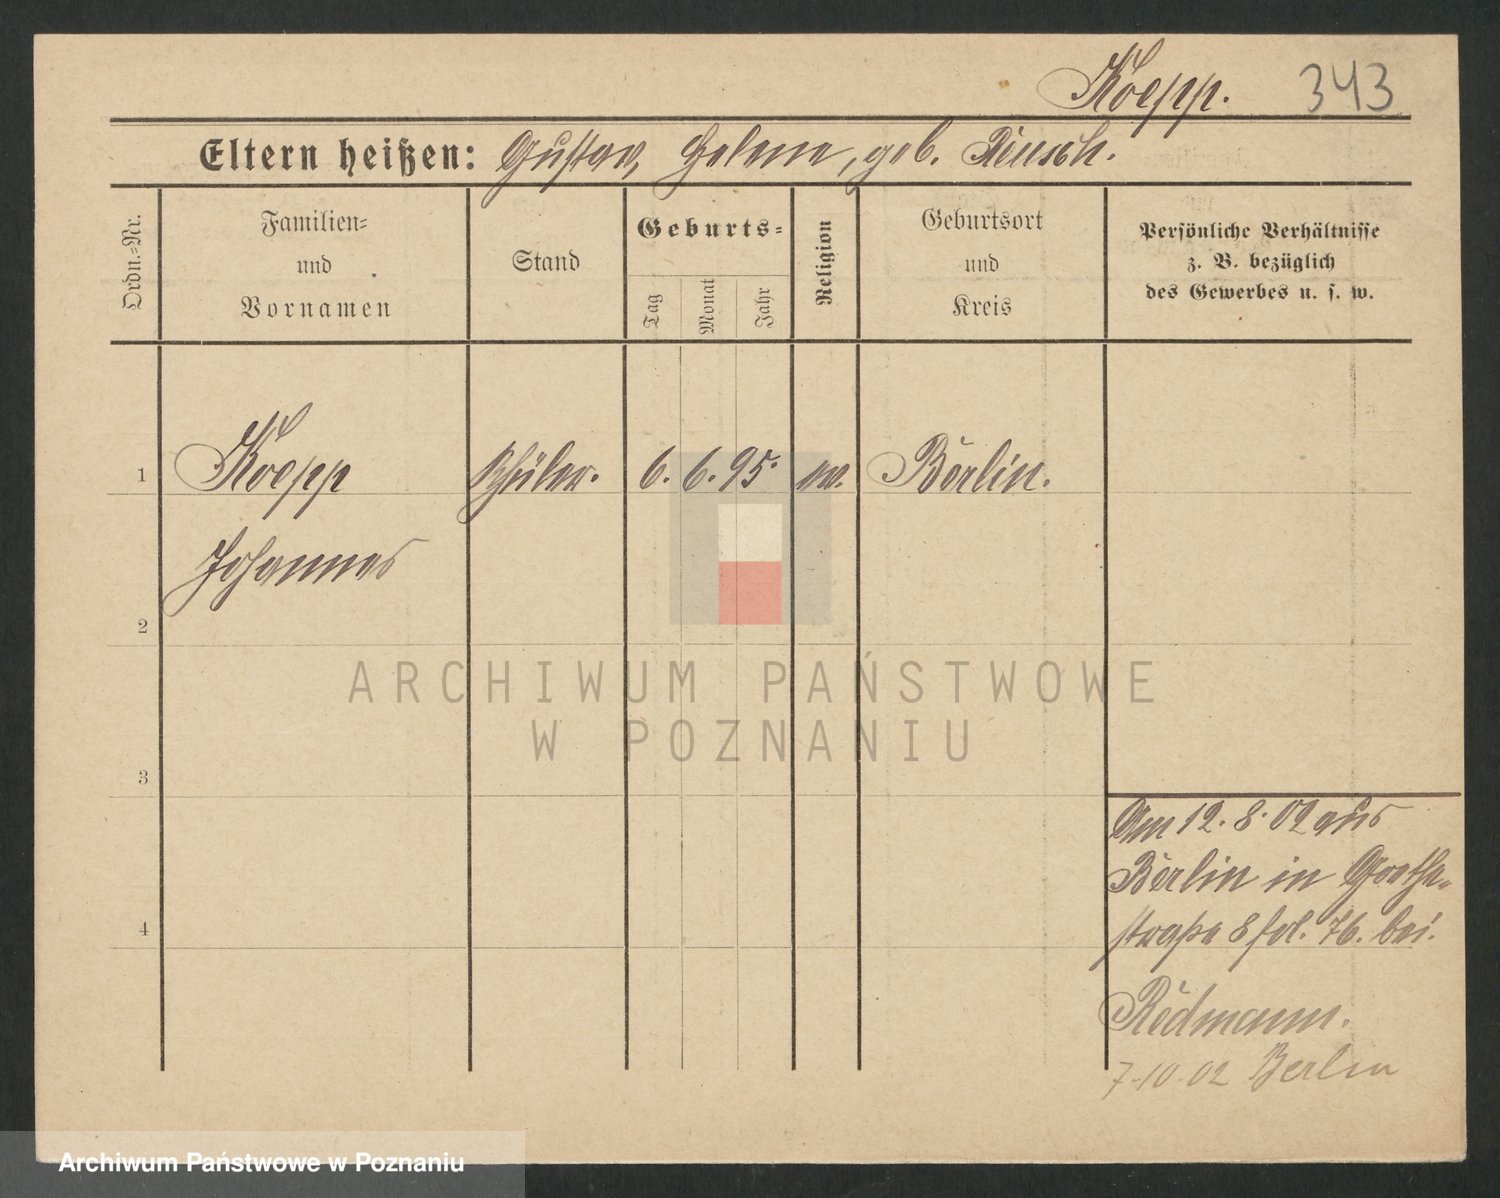 Koepp. 343
Eltern heißen: Gustav, Helene, geb. Riusch.
Ordn.=Nr.
Familien=
und
Vornamen
Stand
Geburts=
Tag
Monat
Jahr
Religion
Geburtsort
und
Kreis
Persönliche Verhältnisse
z. B. bezüglich
des Gewerbes u. s. w.
1 Koepp Schüler. 6. 6. 95. ev. Berlin.
Johannes
2
ARCHIWUM PAŃSTWOWE
W POZNANIU
3
Am 12. 8. 02 aus
Berlin in Goethe-
4 straße 8 fol. 76. bei
Rödmann.
7.10.02 Berlin
Archiwum Państwowe w Poznaniu